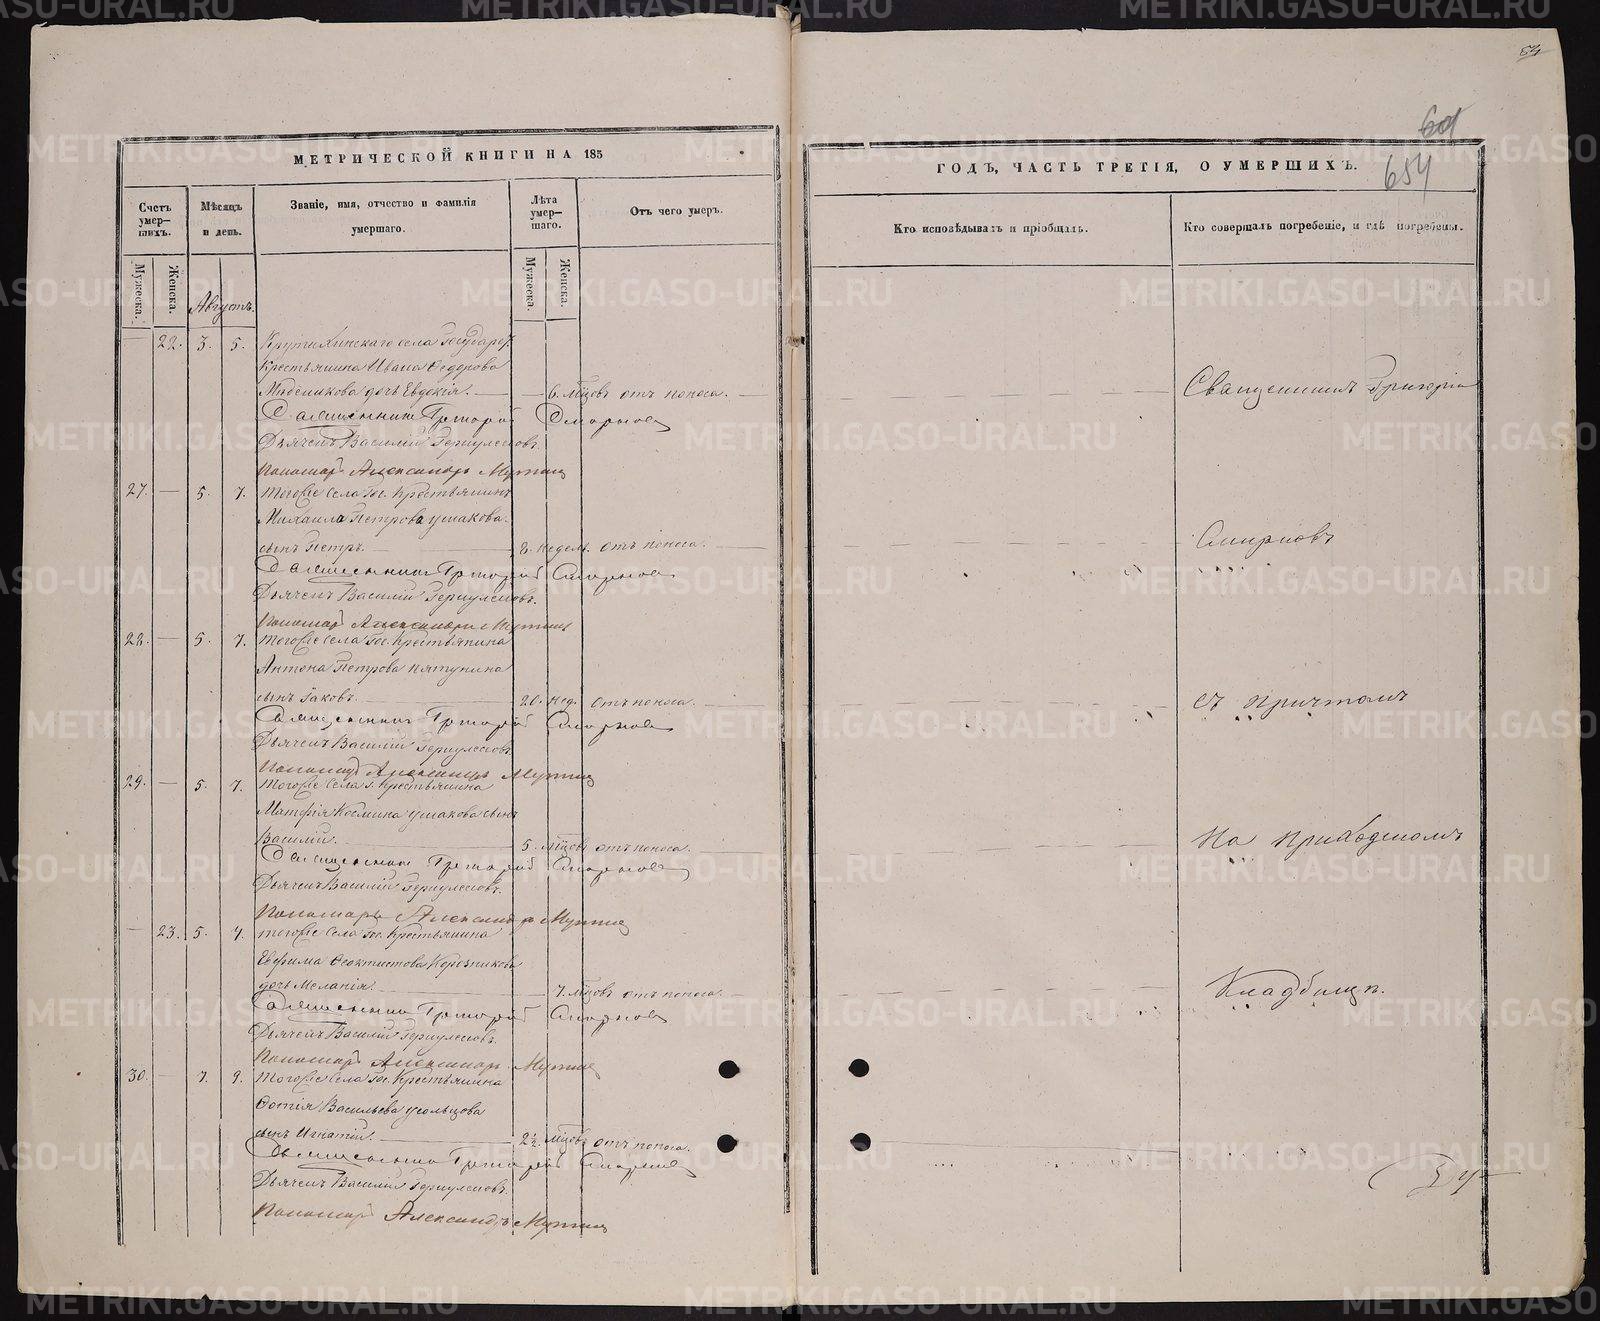 54
601
654
МЕТРИЧЕСКОЙ КНИГИ НА 185
ГОДЪ, ЧАСТЬ ТРЕТІЯ, О УМЕРШИХЪ.
Счетъ умер-шихъ.
Мѣсяцъ и день.
Званіе, имя, отчество и фамилія умершаго.
Лѣта умер-шаго.
Отъ чего умеръ.
Кто исповѣдывалъ и пріобщалъ.
Кто совершалъ погребеніе, и гдѣ погребены.
Мужеска.
Женска.
Мужеска.
Женска.
Августъ.
— 22. 3. 5. Крутихинскаго села Государст.
крестьянина Ивана Ѳедорова
дочь Евдокія. — — 6. мѣсцовъ отъ поноса. —
Священникъ Григорій Смирновъ
Дьячекъ Василій
Пономарь Александръ
27. — 5. 7. тогоже села Гос. Крестьянина
Михаила Петрова Ушакова
сынъ Петръ. — 8. недель. отъ поноса. —
Священникъ Григорій Смирновъ
Дьячекъ Василій
Пономарь Александръ
28. — 5. 7. тогоже села Гос. Крестьянина
Антона Петрова Пятунина
сынъ Іаковъ. — 20. нед. отъ поноса. —
Священникъ Григорій Смирновъ
Дьячекъ Василій
Пономарь Александръ
29. — 5. 7. тогоже села г. Крестьянина
Матфія Космина Ушакова сынъ
Василій. — 5. мѣсцовъ отъ поноса. —
Священникъ Григорій Смирновъ
Дьячекъ Василій
Пономарь Александръ
— 23. 5. 7. тогоже села Гос. Крестьянина
Евфима Ѳеоктистова
дочь Меланія. — 7. мѣсцовъ отъ поноса. —
Священникъ Григорій Смирновъ
Дьячекъ Василій
Пономарь Александръ
30. — 7. 9. тогоже села Гос. Крестьянина
Фотія Васильева Усольцова
сынъ Игнатій. — 2½. мѣсцовъ отъ поноса.
Священникъ Григорій Смирновъ
Дьячекъ Василій
Пономарь Александръ
Священникъ Григорій
Смирновъ
съ причтомъ
На приходскомъ
Кладбищѣ.
METRIKI.GASO-URAL.RU